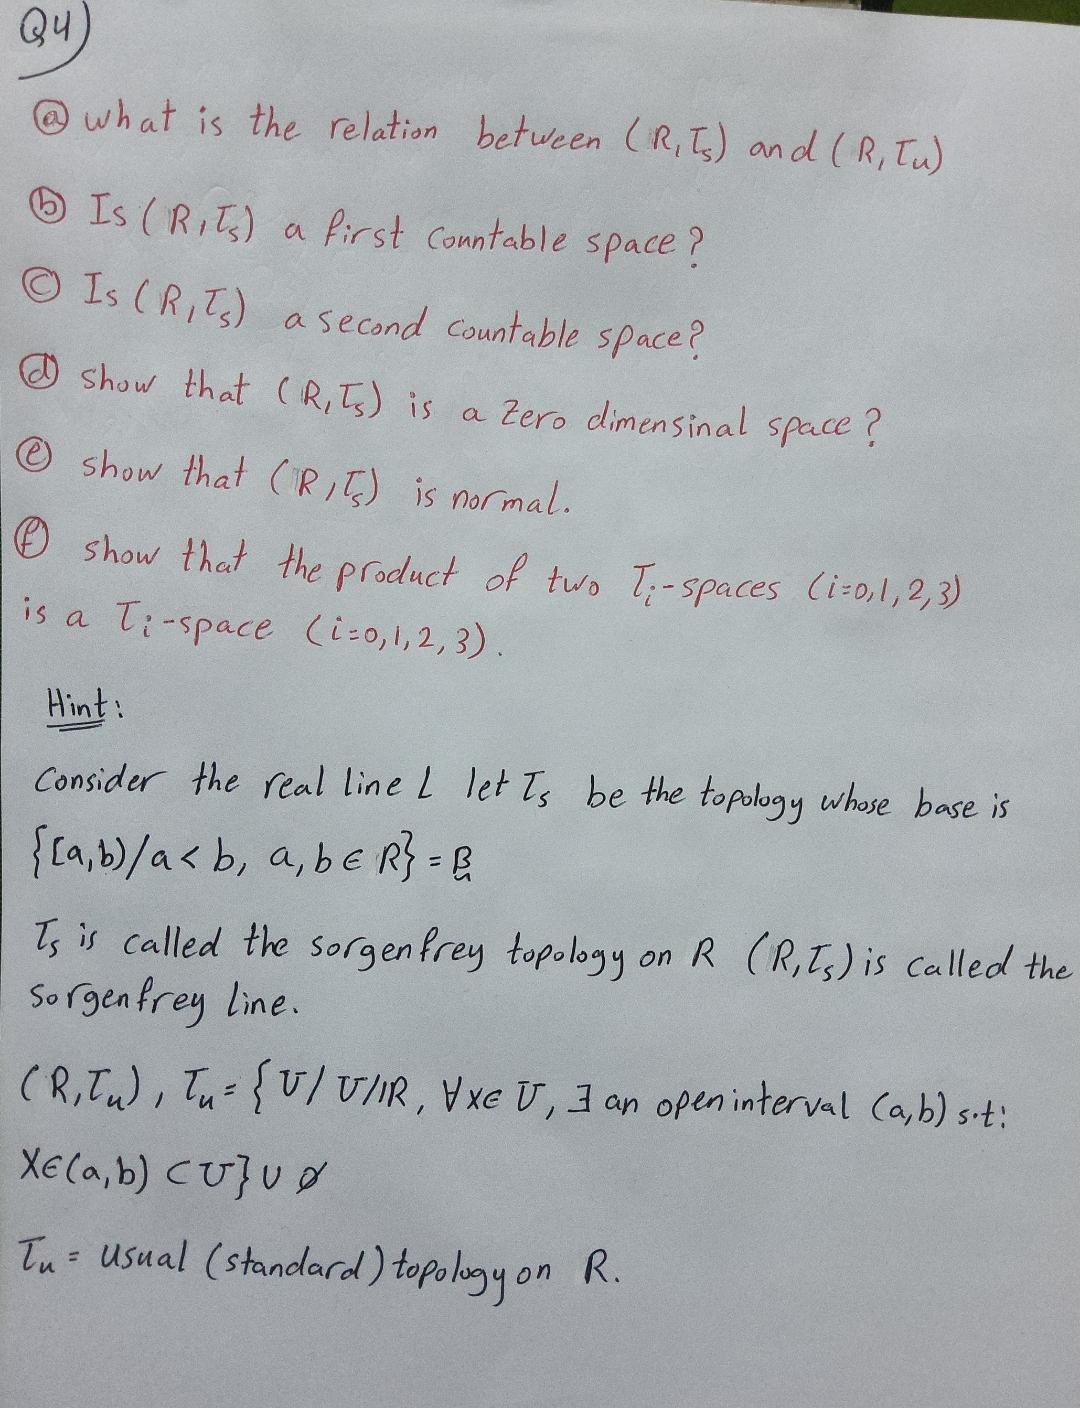 Q4)
ⓐ what is the relation between (R,τs) and (R,τu)
ⓑ Is (R,τs) a first countable space?
ⓒ Is (R,τs) a second countable space?
ⓓ show that (R,τs) is a zero dimensinal space?
ⓔ show that (R,τs) is normal.
ⓕ show that the product of two Ti-spaces (i=0,1,2,3)
is a Ti-space (i=0,1,2,3).
Hint:
Consider the real line L let τs be the topology whose base is
{[a,b)/a<b, a,b∈R} = B
τs is called the sorgenfrey topology on R (R,τs) is called the
sorgenfrey line.
(R,τu), τu = {U/ U/IR, ∀x∈U, ∃ an open interval (a,b) s.t:
x∈(a,b) ⊂U} ∪ ∅
τu = usual (standard) topology on R.